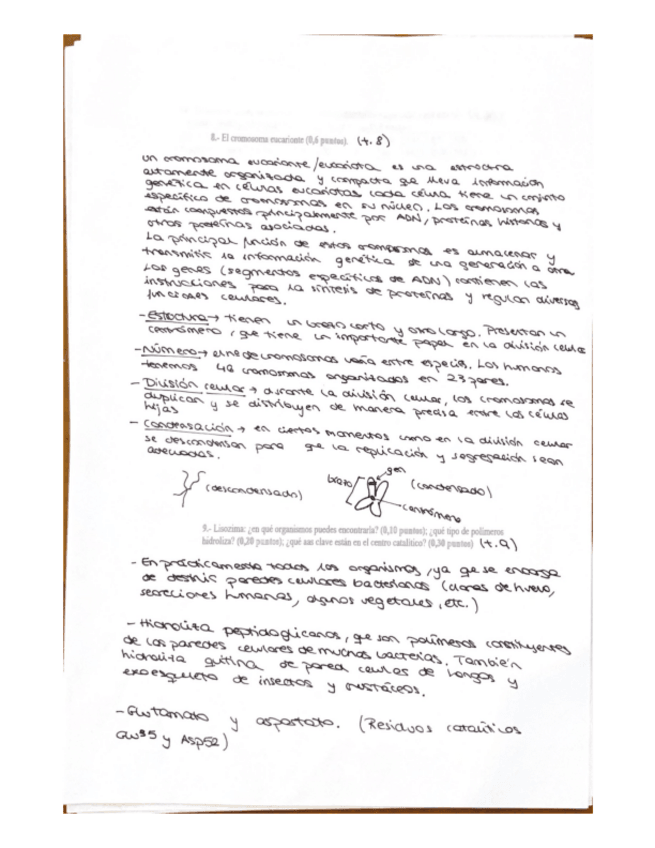 8.- El cromosoma eucarionte (0,6 puntos). (t.8)
un cromosoma eucarionte/eucariota es una estructura
altamente organizada y compacta que lleva información
genética en células eucariotas cada célula tiene un conjunto
específico de cromosomas en su núcleo. Los cromosomas
están compuestos principalmente por ADN, proteínas histonas y
otras proteínas asociadas.
La principal función de estos cromosomas es almacenar y
transmitir la información genética de una generación a otra
Los genes (segmentos específicos de ADN) contienen las
instrucciones para la síntesis de proteínas y regulan diversas
funciones celulares.
- Estructura → tienen un brazo corto y otro largo. Presentan un
centrómero, que tiene un importante papel en la división celular
- Número → el nº de cromosomas varía entre especies. Los humanos
tenemos 46 cromosomas organizados en 23 pares.
- División celular → durante la división celular, los cromosomas se
duplican y se distribuyen de manera precisa entre las células
hijas
- Condensación → en ciertos momentos como en la división celular
se descondensan para que la replicación y segregación sean
adecuadas.
(descondensado) brazo gen (condensado)
centrómero
9.- Lisozima: ¿en qué organismos puedes encontrarla? (0,10 puntos); ¿qué tipo de polímeros
hidroliza? (0,20 puntos); ¿qué aas clave están en el centro catalítico? (0,30 puntos) (t.9)
- En prácticamente todos los organismos, ya que se encarga
de destruir paredes celulares bacterianas (claras de huevo,
secreciones humanas, algunos vegetales, etc.)
- Hidroliza peptidoglicanos, que son polímeros constituyentes
de las paredes celulares de muchas bacterias. También
hidroliza quitina de pared celular de hongos y
exoesqueleto de insectos y crustáceos.
- Glutamato y aspartato. (Residuos catalíticos
Glu35 y Asp52)